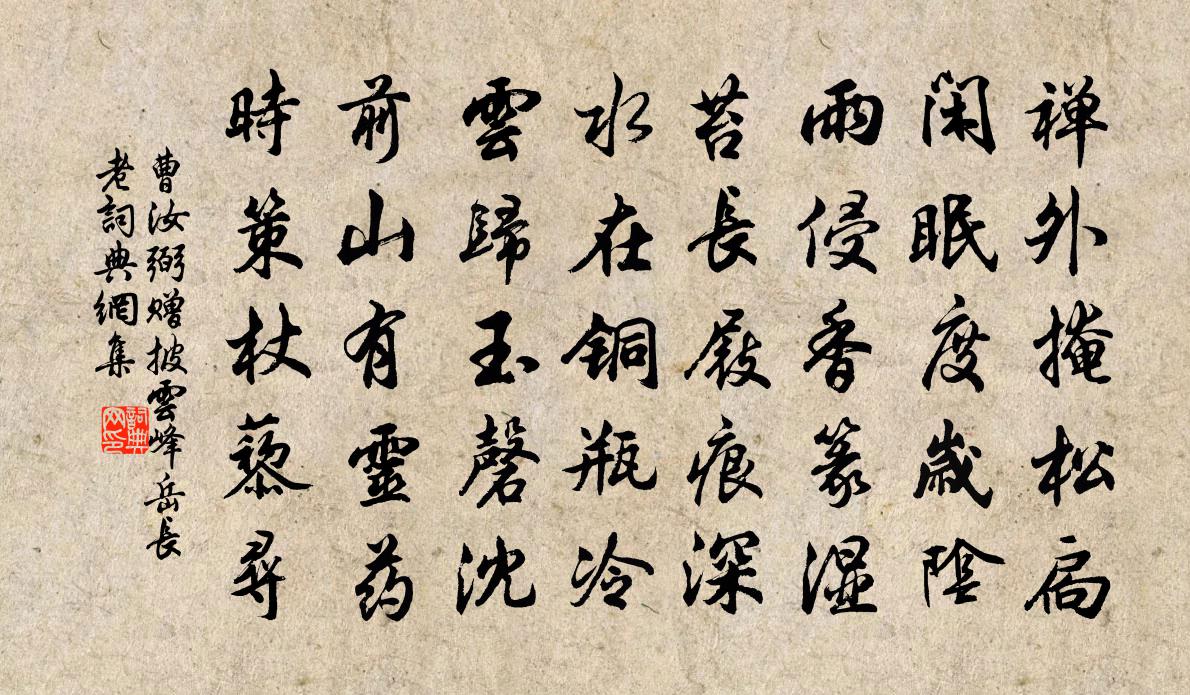 禅外掩松扃
闲眠度歲陰
雨侵香篆湿
苔長屐痕深
水在铜瓶冷
雲歸玉磬沈
前山有靈药
時策杖藜尋
曹汝弼赠披雲峰岳長
老詞典網集
詞典网印